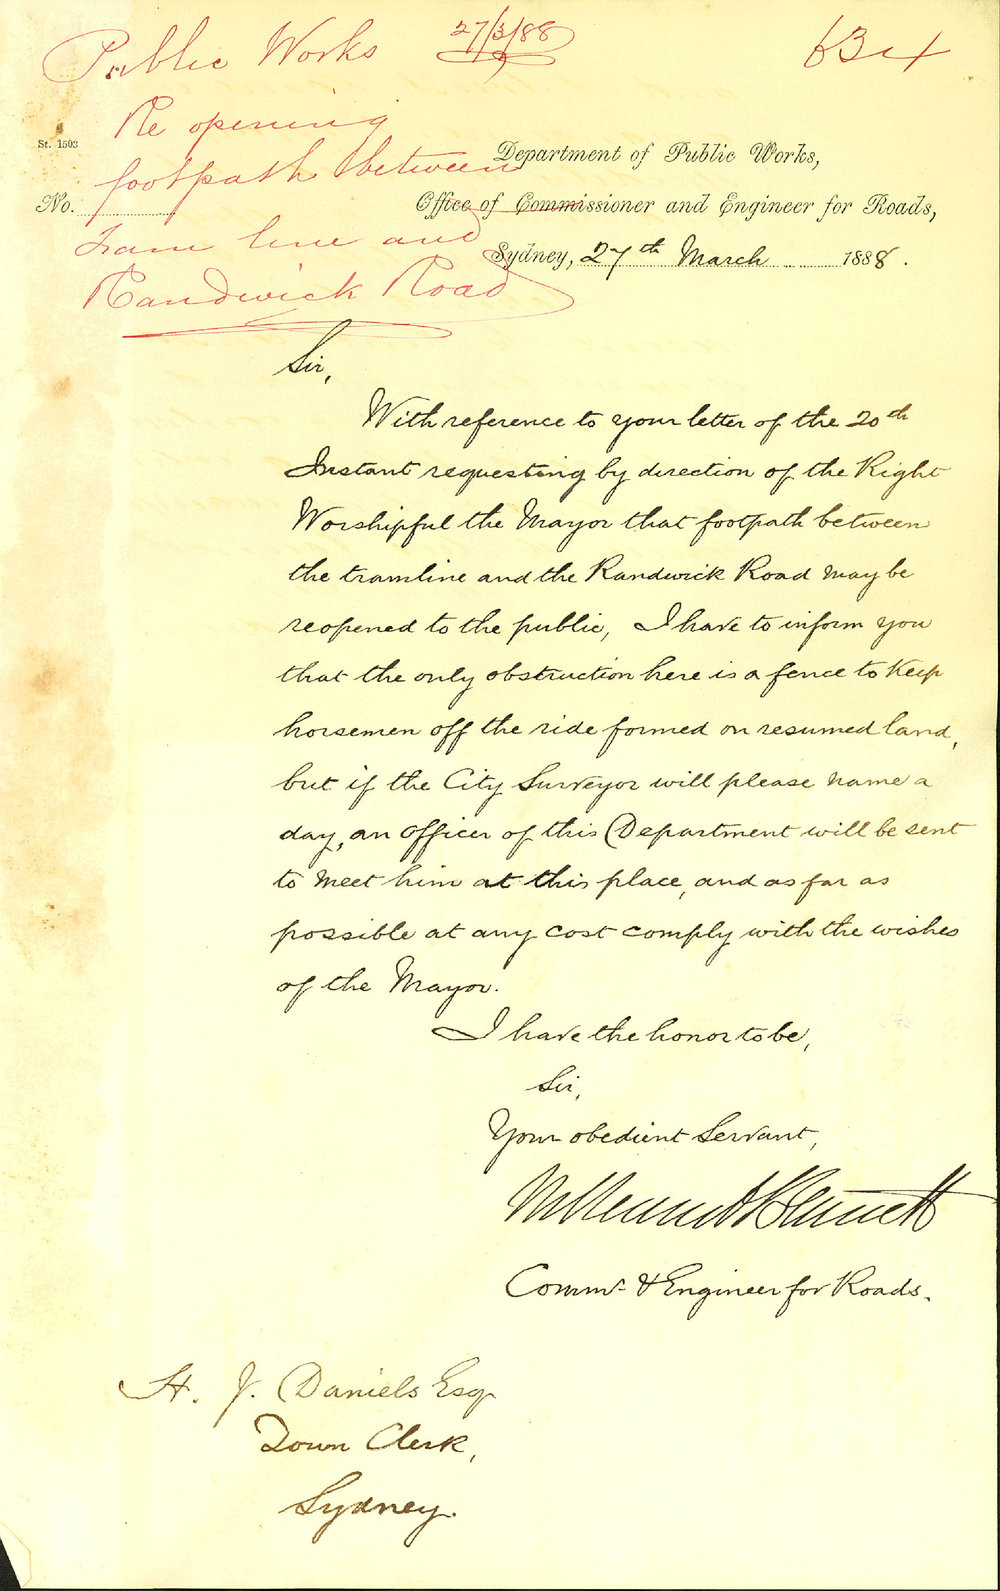 Public Works 27/3/88
Re opening
footpath between
tram line and
Randwick Road
St. 1503
No.
Department of Public Works,
Office of Commissioner and Engineer for Roads,
Sydney, 27th March 1888.
Sir,
With reference to your letter of the 20th
Instant requesting by direction of the Right
Worshipful the Mayor that footpath between
the tramline and the Randwick Road may be
reopened to the public, I have to inform you
that the only obstruction here is a fence to keep
horsemen off the ride formed on resumed land,
but if the City Surveyor will please name a
day, an officer of this Department will be sent
to meet him at this place, and as far as
possible at any cost comply with the wishes
of the Mayor.
I have the honor to be,
Sir,
Your obedient Servant,
Bennett
Commr & Engineer for Roads.
H. J. Daniels Esq
Town Clerk,
Sydney.